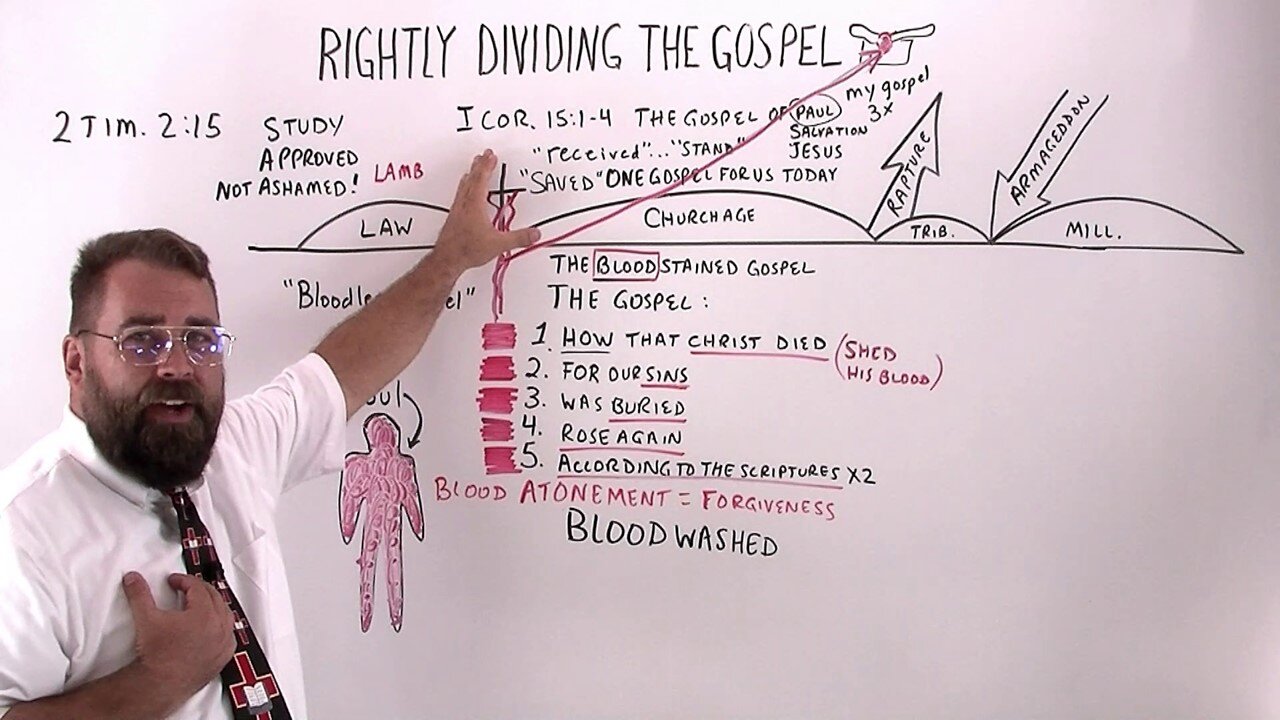 RIGHTLY DIVIDING THE GOSPEL
2 TIM. 2:15
STUDY
APPROVED
NOT ASHAMED!
LAMB
I COR. 15:1-4 THE GOSPEL OF PAUL
my gospel
3x
SALVATION
JESUS
"received"... "STAND"
"SAVED" ONE GOSPEL FOR US TODAY
LAW
CHURCH AGE
RAPTURE
TRIB.
ARMAGEDDON
MILL.
THE BLOOD STAINED GOSPEL
THE GOSPEL:
1. HOW THAT CHRIST DIED (SHED
HIS BLOOD)
2. FOR OUR SINS
3. WAS BURIED
4. ROSE AGAIN
5. ACCORDING TO THE SCRIPTURES X2
BLOOD ATONEMENT = FORGIVENESS
BLOOD WASHED